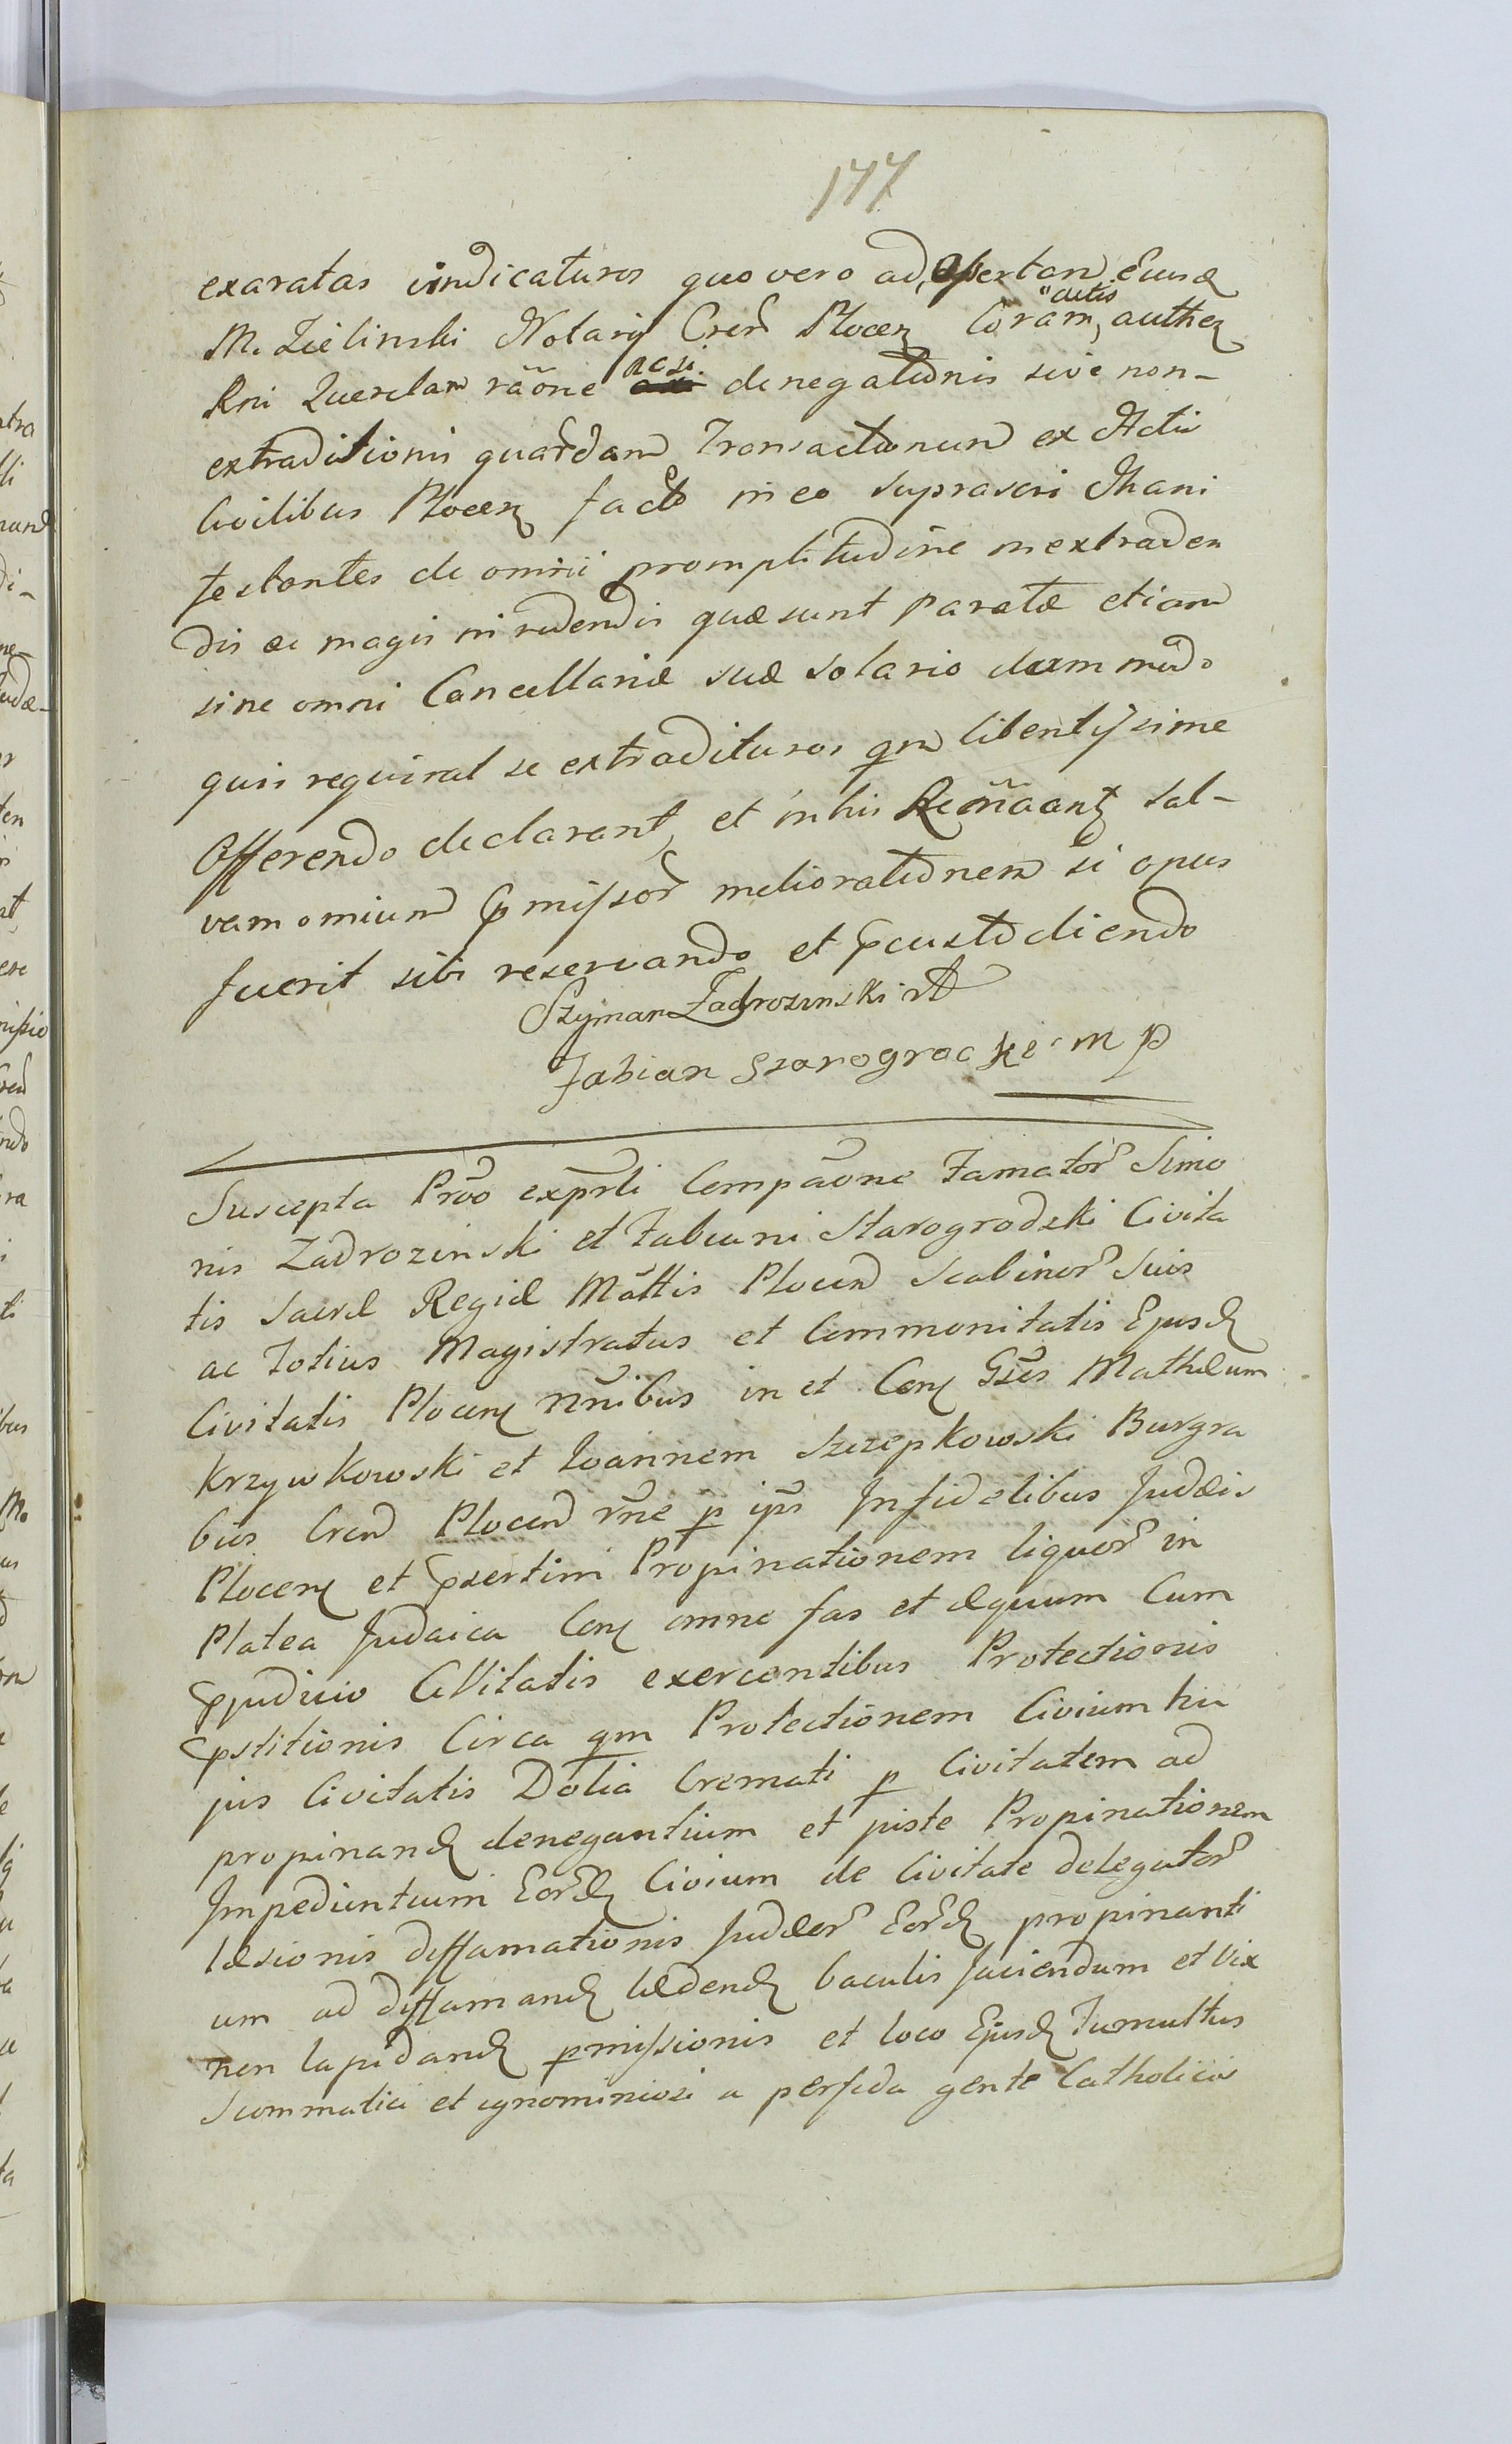 177
exaratas vindicaturos quo vero ad assertam Eius
M. Zielinski Notarij Cren Plocen Coram actis authen
Rni Querelam raone acsi denegationis sive non-
extraditionis quardam Transactionum ex Actis
Civilibus Plocen facto in eo suprascri Mani
festantes de omni promptitudine in extraden
dis ac magis in videndis quæ sunt paratæ etiam
sine omni Cancellariæ suæ solario dummodo
quis requirat se extradituros qm libentissime
Offerendo declarant, et in his Remaant sal-
vam omium pmissor meliorationem si opus
fuerit sibi reservando et pcustodiendo
Szyman Zadrozinski
Fabian Starogrocki mp
Suscepta Prvo exprti Compaone Famator Simo
nis Zadrozinski et Fabiani Starogrodzki Civita
tis Sacræ Regiæ Mattis Plocen Scabinor Suis
ac Totius Magistratus et Communitatis Ejusd
Civitatis Plocen nnibus in et Con Gsos Mathæum
Krzywkowski et Ioannem Szczepkowski Burgra
bios Cren Plocen rne p ips Infidelibus Judæis
Plocen et psertim Propinationem liquor in
Platea Judaica Con omne fas et æquum Cum
pjudicio CiVitatis exercentibus Protectionis
pstitionis Circa qm Protectionem Civium hu
jus Civitatis Dolia Cremati p Civitatem ad
propinand denegantium et juste Propinationem
Impedientium Eord Civium de Civitate delegator
læsionis diffamationis Judæor Eord propinanti
um ad diffamand lædend baculis faciendum et vix
non lapidand pmissionis et loco Ejusd Tumultus
Scommatici et ignominiosi a perfida gente Catholicis